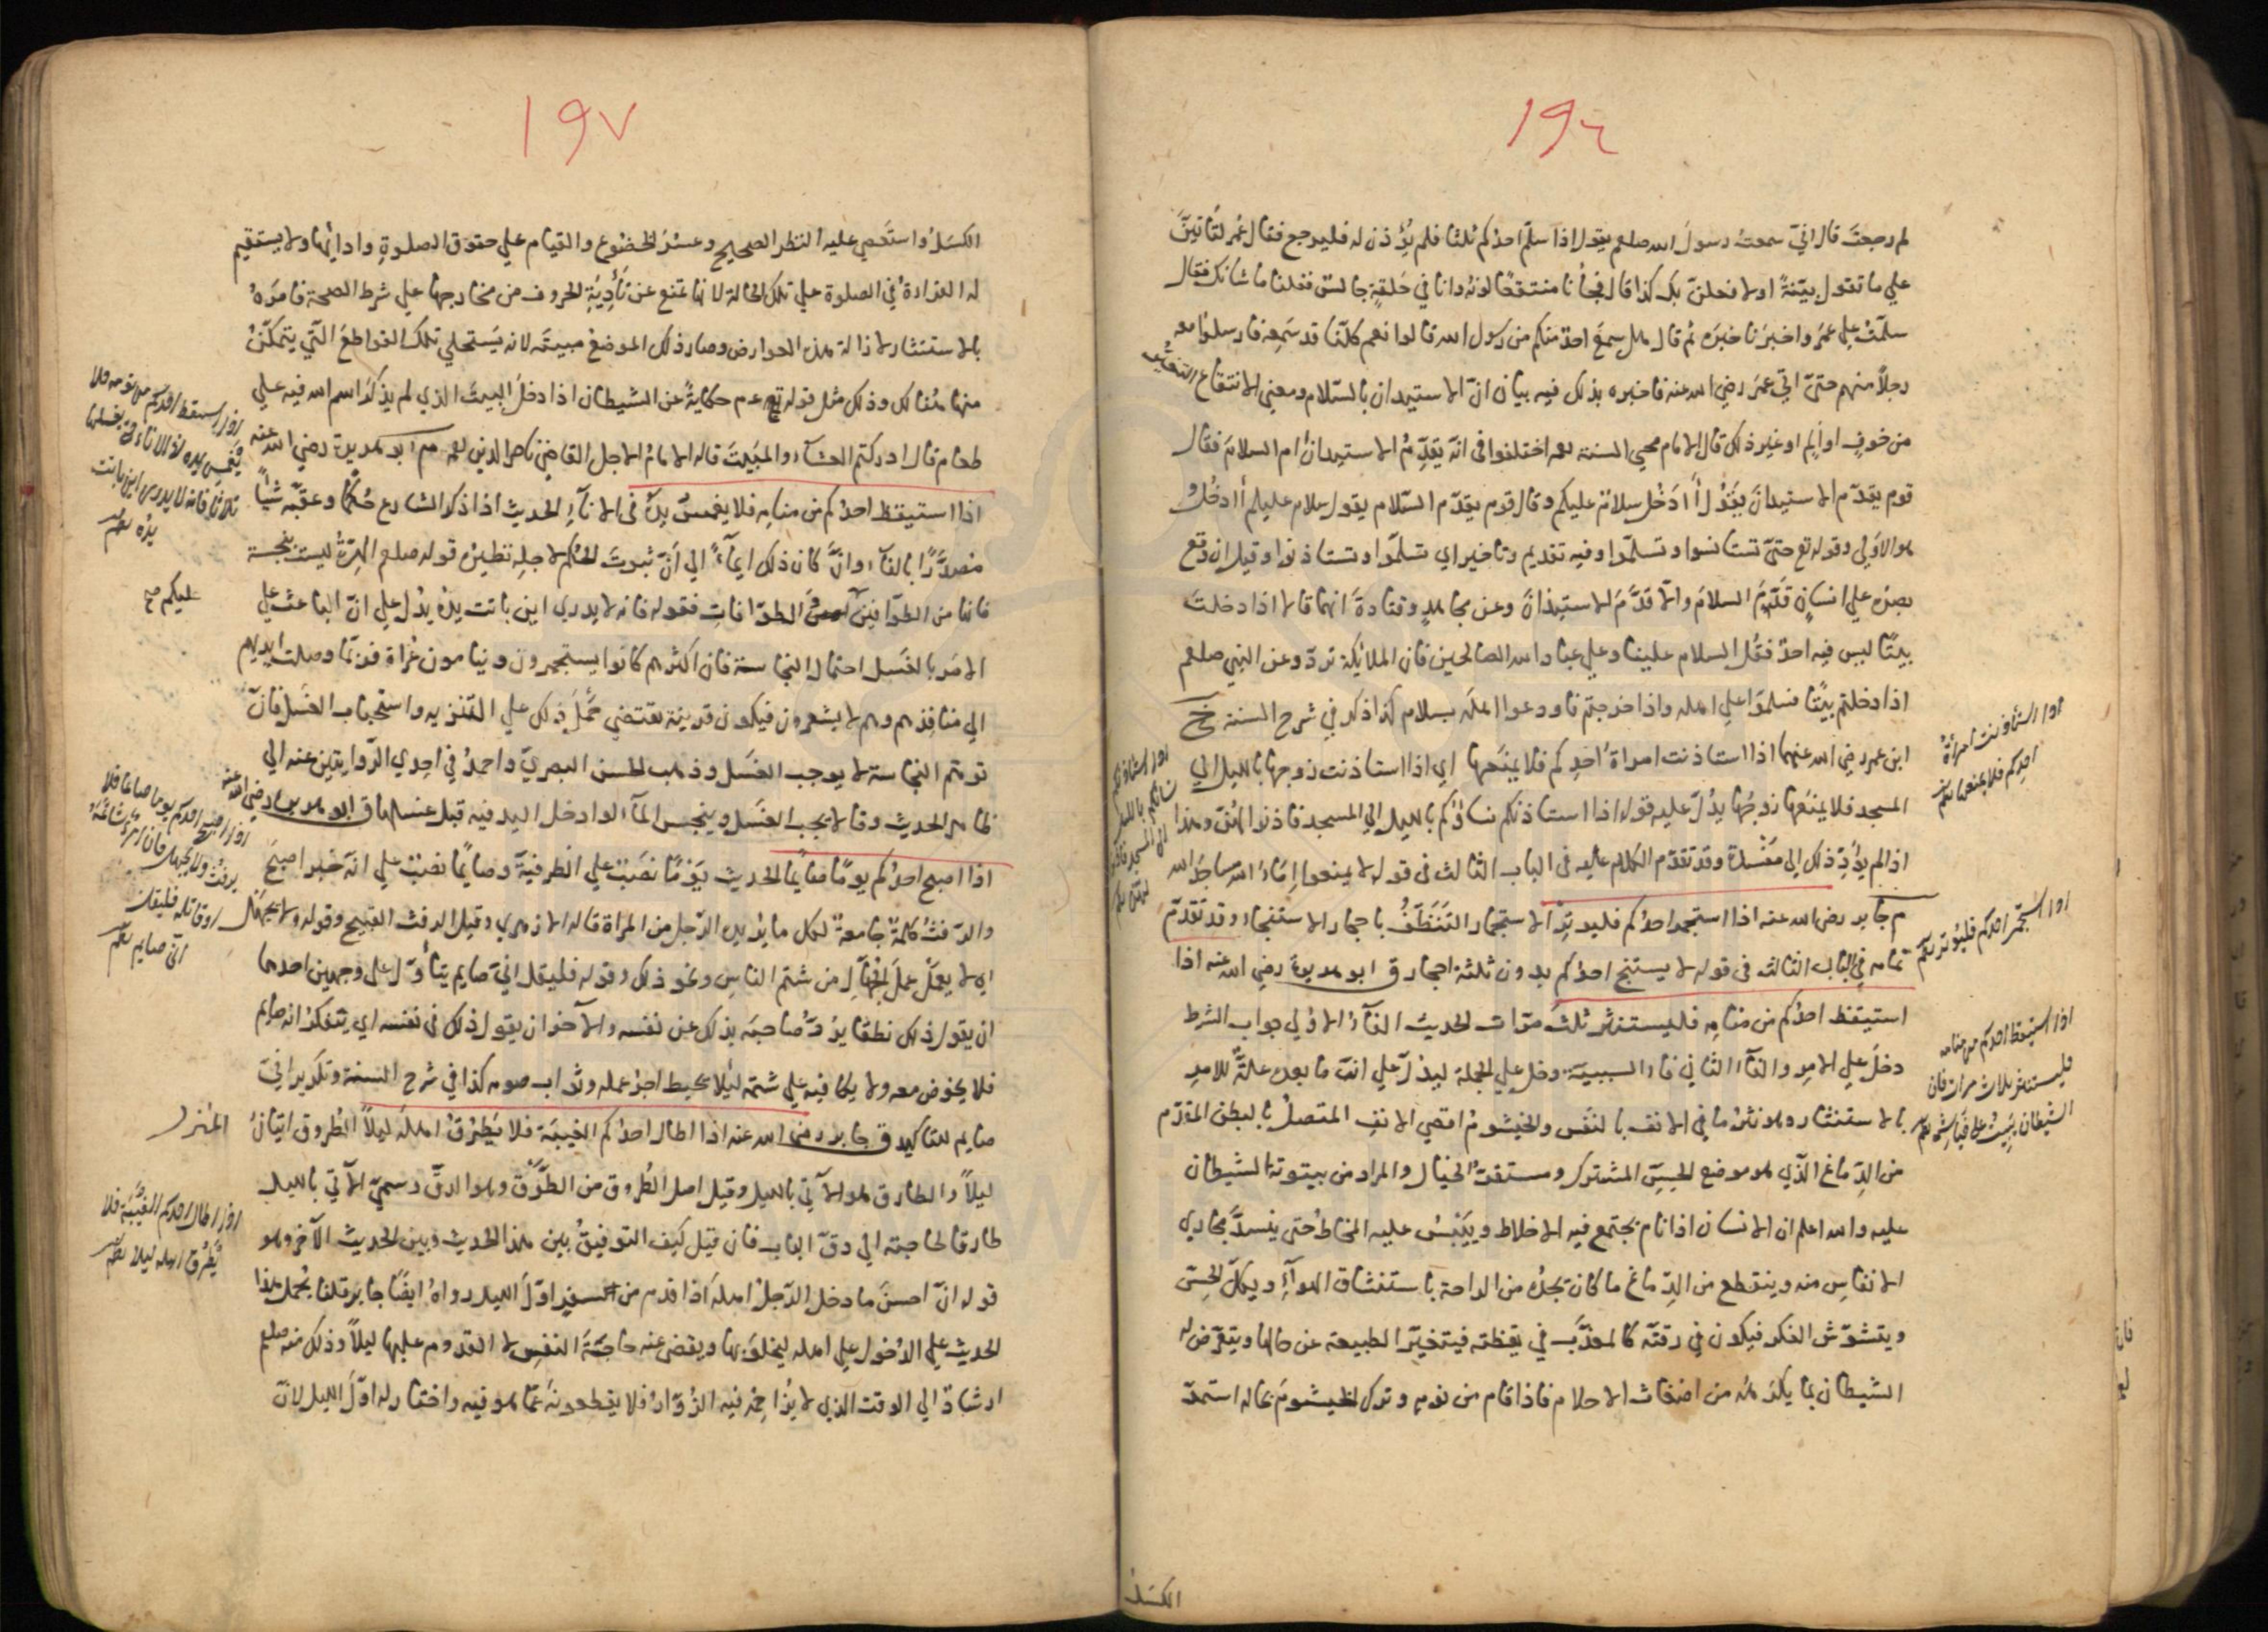 ١٩٦
لم رجعت قال اني سمعت رسول الله صلعم يقول اذا سلم احدكم ثلثا فلم يؤذن له فليرجع فقال عمر لتاتين
علي ما تقول ببينة او لافعلن بك كذا قال فجأنا منتقعا لونه وانا في حلقة جالس فقلنا ما شانك فقال
سلمت علي عمر واخبرنا خبره ثم قال هل سمع احد منكم من رسول الله قالوا نعم كلنا قد سمعه فارسلوا معه
رجلا منهم حتى اتى عمر رضي الله عنه فاخبره بذلك فيه بيان ان الاستيدان بالسلام ومعنى الانتقاع التغير
من خوف او الم او غير ذلك قال الامام محيي السنة اختلفوا في انه يقدم الاستيدان ام السلام فقال
قوم يقدم الاستيدان يقول أ ادخل سلام عليكم وقال قوم يقدم السلام يقول سلام عليكم أ ادخل و
هو الاولى وقوله تع حتى تستانسوا وتسلموا وفيه تقديم وتاخير اي تسلموا وتستاذنوا وقيل ان وقع
بصره علي انسان قدم السلام والا قدم الاستيذان وعن مجاهد وقتادة انهما قالا اذا دخلت
بيتا ليس فيه احد فقل السلام علينا وعلي عباد الله الصالحين فان الملائكة ترد وعن النبي صلعم
اذا دخلتم بيتا فسلموا علي اهله واذا خرجتم فاودعوا اهله بسلام كذا ذكر في شرح السنة خ
ابن عمر رضي الله عنهما اذا استاذنت امراة احدكم فلا يمنعها اي اذا استاذنت زوجها بالليل الي
المسجد فلا يمنعها زوجها يدل عليه قوله اذا استاذنكم نساؤكم بالليل الي المسجد فاذنوا لهن وهذا
اذا لم يؤد ذلك الى مفسدة وقد تقدم الكلام عليه في الباب الثالث في قوله لا يمنعوا اماء الله مساجد الله
م جابر رضي الله عنه اذا استجمر احدكم فليوتر الاستجمار التنظف باحجار الاستنجاء وقد تقدم
تمامه في الباب الثالث في قوله لا يستنج احدكم بدون ثلثة احجار ق ابو هريرة رضي الله عنه اذا
استيقظ احدكم من منامه فليستنثر ثلث مرات الحديث الفاء الاولي جواب الشرط
دخل علي الامر والفاء الثاني فاء السببية دخل علي الجملة ليدل علي ان ما بعده علة للامر
بالاستنثار وهو نثر ما في الانف بالنفس والخيشوم اقصي الانف المتصل بالبطن المقدم
من الدماغ الذي هو موضع الحس المشترك ومستقر الخيال والمراد من بيتوتة الشيطان
عليه والله اعلم ان الانسان اذا نام يجتمع فيه الاخلاط وييبس عليه المخاط حتى ينسد مجاري
الانفاس منه وينقطع من الدماغ ما كان يجده من الراحة باستنشاق الهوآء ويكل الحس
ويتشوش الفكر فيكون في رقته كالمعذب في يقظته فيتخير الطبيعة عن حالها ويتعرض له
الشيطان بما يكرهه من اضغاث الاحلام فاذا قام من نومه وترك الخيشوم بحاله استمر
الكسل
اذا استاذنت امرأة
احدكم فلا يمنعها
اذا استاذنكم
نساؤكم بالليل
الى المسجد فاذنوا
لهن
اذا استجمر احدكم فليوتر
اذا استيقظ احدكم من منامه
فليستنثر ثلاث مرات فان
الشيطان يبيت على خياشيمه
١٩٧
الكسل واستعصي عليه النظر الصحيح وعسر الخضوع والقيام علي حقوق الصلوة وادائها ولا يستقيم
له القراءة في الصلوة علي تلك الحالة لانها تمنع عن تأدية الحروف من مخارجها علي شرط الصحة فامره
بالاستنثار لازالة هذه العوارض وصار ذلك الموضع مبيته لانه يستحلي تلك القواطع التي يتمكن
منها هنالك وذلك مثل قوله عم حكاية عن الشيطان اذا دخل البيت الذي لم يذكر اسم الله فيه علي
طعام قال ادركتم العشاء والمبيت قاله الامام الاجل القاضي ناصر الدين م ابو هريرة رضي الله عنه
اذا استيقظ احدكم من منامه فلا يغمس يده في الانآء الحديث اذا ذكر الشارع حكما وعقبه شيأ
مصدرا بالفآء وان كان ذلك ايماء الي ان ثبوت الحكم لاجله نظيره قوله صلعم الهرة ليست بنجسة
فانها من الطوافين والطوافات فقوله فانه لا يدري اين باتت يده يدل علي ان الباعث علي
الامر بالغسل احتمال النجاسة فان اكثرهم كانوا يستجمرون وينامون عراة فربما وصلت ايديهم
الي منافذهم وهم لا يشعرون فيكون قرينة تقتضي حمل ذلك علي التنزيه واستحباب الغسل فان
توهم النجاسة لا يوجب الغسل وذهب الحسن البصري واحمد في احدي الروايتين عنه الي
ظاهر الحديث وقالا يجب الغسل وينجس المآء لو ادخل اليد فيه قبل غسلها ق ابو هريرة رضي الله عنه
اذا اصبح احدكم يوما صايما الحديث يوما نصب علي الظرفية وصايما نصب علي انه خبر اصبح
والرفث كلمة جامعة لكل ما يريد الرجل من المراة قاله الازهري وقيل الرفث القبيح وقوله ولا يجهل
اي لا يعمل عمل الجهال من شتم الناس ونحو ذلك وقوله فليقل اني صايم يتأول علي وجهين احدهما
ان يقول ذلك نطقا يرد صاحبه بذلك عن نفسه والآخر ان يقول ذلك في نفسه اي يتفكر انه صايم
فلا يخوض معه ولا يكافيه علي شتمه ليلا يحبط اجر عمله وثواب صومه كذا في شرح السنة وتكرير اني
صايم للتاكيد ق جابر رضي الله عنه اذا اطال احدكم الغيبة فلا يطرق اهله ليلا الطروق اتيان المنزل
ليلا والطارق هو الآتي بالليل وقيل اصل الطروق من الطرق وهو الدق وسمي الآتي بالليل
طارقا لحاجته الي دق الباب فان قيل كيف التوفيق بين هذا الحديث وبين الحديث الآخر وهو
قوله ان احسن ما دخل الرجل اهله اذا قدم من السفر اول الليل رواه ايضا جابر قلنا يحمل هذا
الحديث علي الدخول علي اهله ليخلو بها ويقضي عنه حاجة النفس لا القدوم عليها ليلا وذلك منه صلعم
ارشاد الي الوقت الذي لا يزاحمه فيه الزوار فلا يقطعونه عما هو فيه واختار له اول الليل لان
اذا استيقظ احدكم من نومه فلا
يغمس يده في الاناء حتى يغسلها
ثلاثا فانه لا يدري اين باتت
يده
عليكم صح
اذا اصبح احدكم يوما صائما فلا
يرفث ولا يجهل فان امرؤ شاتمه
او قاتله فليقل
اني صايم
اذا اطال احدكم الغيبة فلا
يطرق اهله ليلا